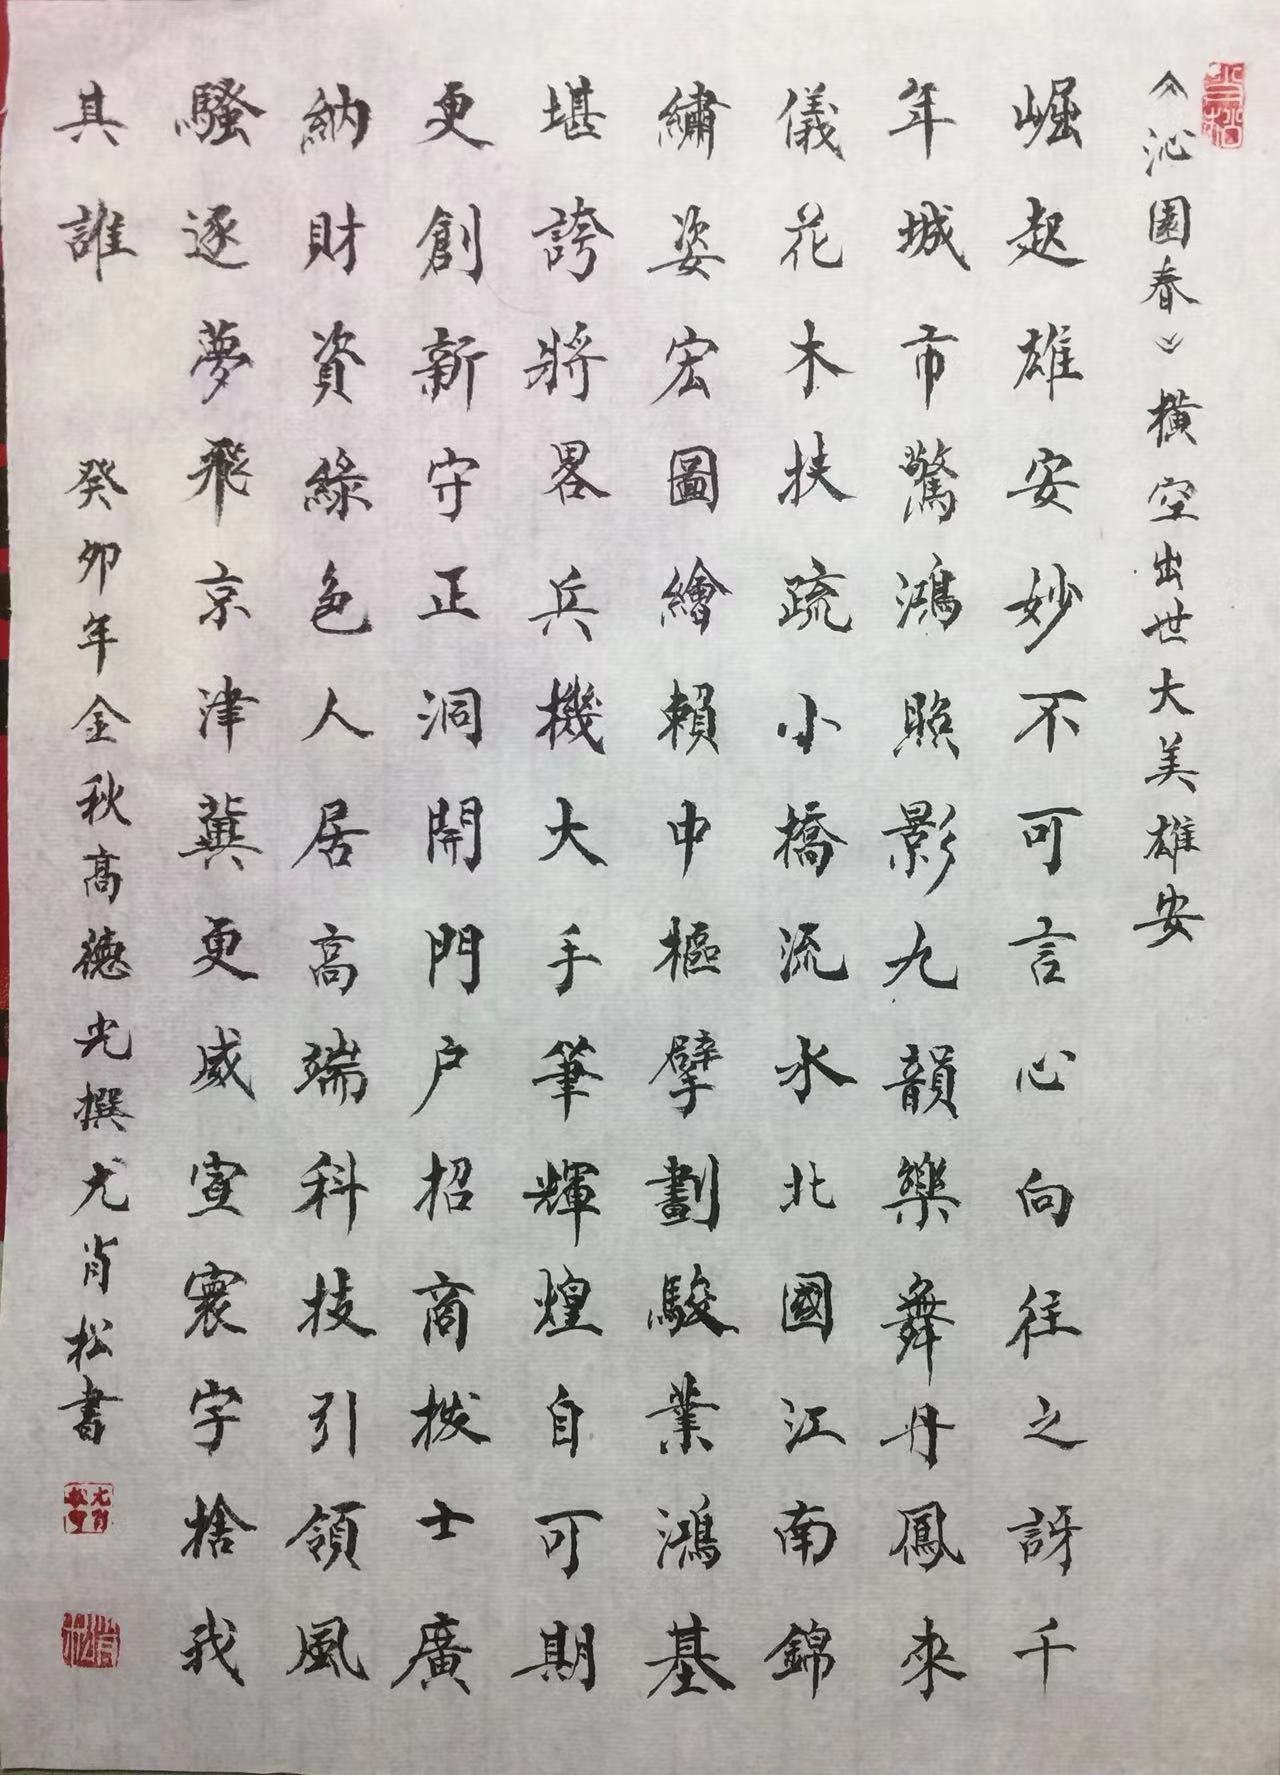 《沁園春》橫空出世大美雄安
崛起雄安妙不可言心向往之訝千
年城市驚鴻照影九韻樂舞丹鳳來
儀花木扶疏小橋流水北國江南錦
繡姿宏圖繪賴中樞擘劃駿業鴻基
堪誇將畧兵機大手筆輝煌自可期
更創新守正洞開門户招商拨士廣
納財資綠色人居高端科技引領風
騷逐夢飛京津冀更威宣寰宇捨我
其誰
癸卯年金秋高德光撰尤肖松書